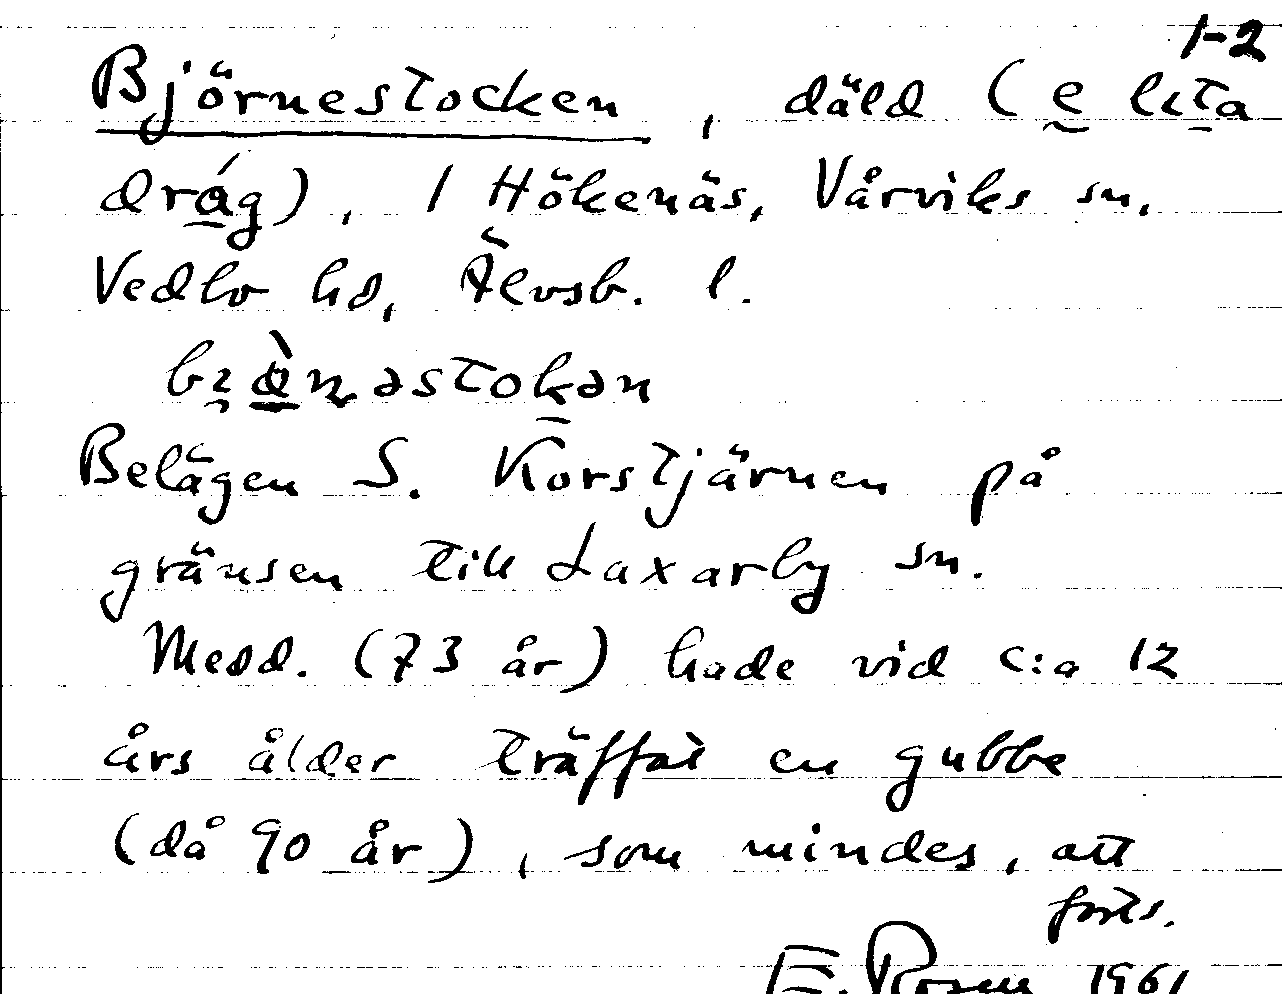 1-2
Björnestocken, däld (e lita
dråg), i Hökenäs, Vårviks sn,
Vedbo hd, Älvsb. l.
Belägen S. Korstjärnen på
gränsen till Laxarby sn.
Medd. (73 år) hade vid c:a 12
års ålder träffat en gubbe
(då 90 år), som mindes, att
forts.
E. Rosen 1961